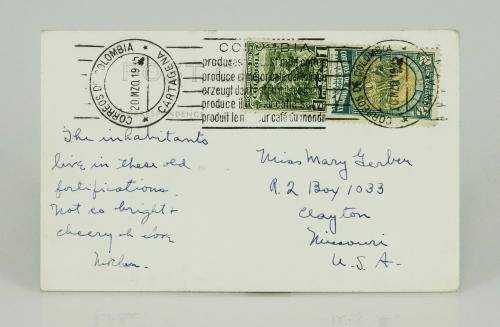 CORREOS DE COLOMBIA
20 MZO. 19
CARTAGENA
COLOMBIA
produces
produce el mejor café
erzeugt
produce il
produit le meilleur café du monde
CORREOS DE COLOMBIA
20 MZO. 19
The inhabitants
live in these old
fortifications.
Not so bright &
cheery
Mother.
Miss Mary Gerber
R. 2 Box 1033
Clayton
Missouri
U. S. A.